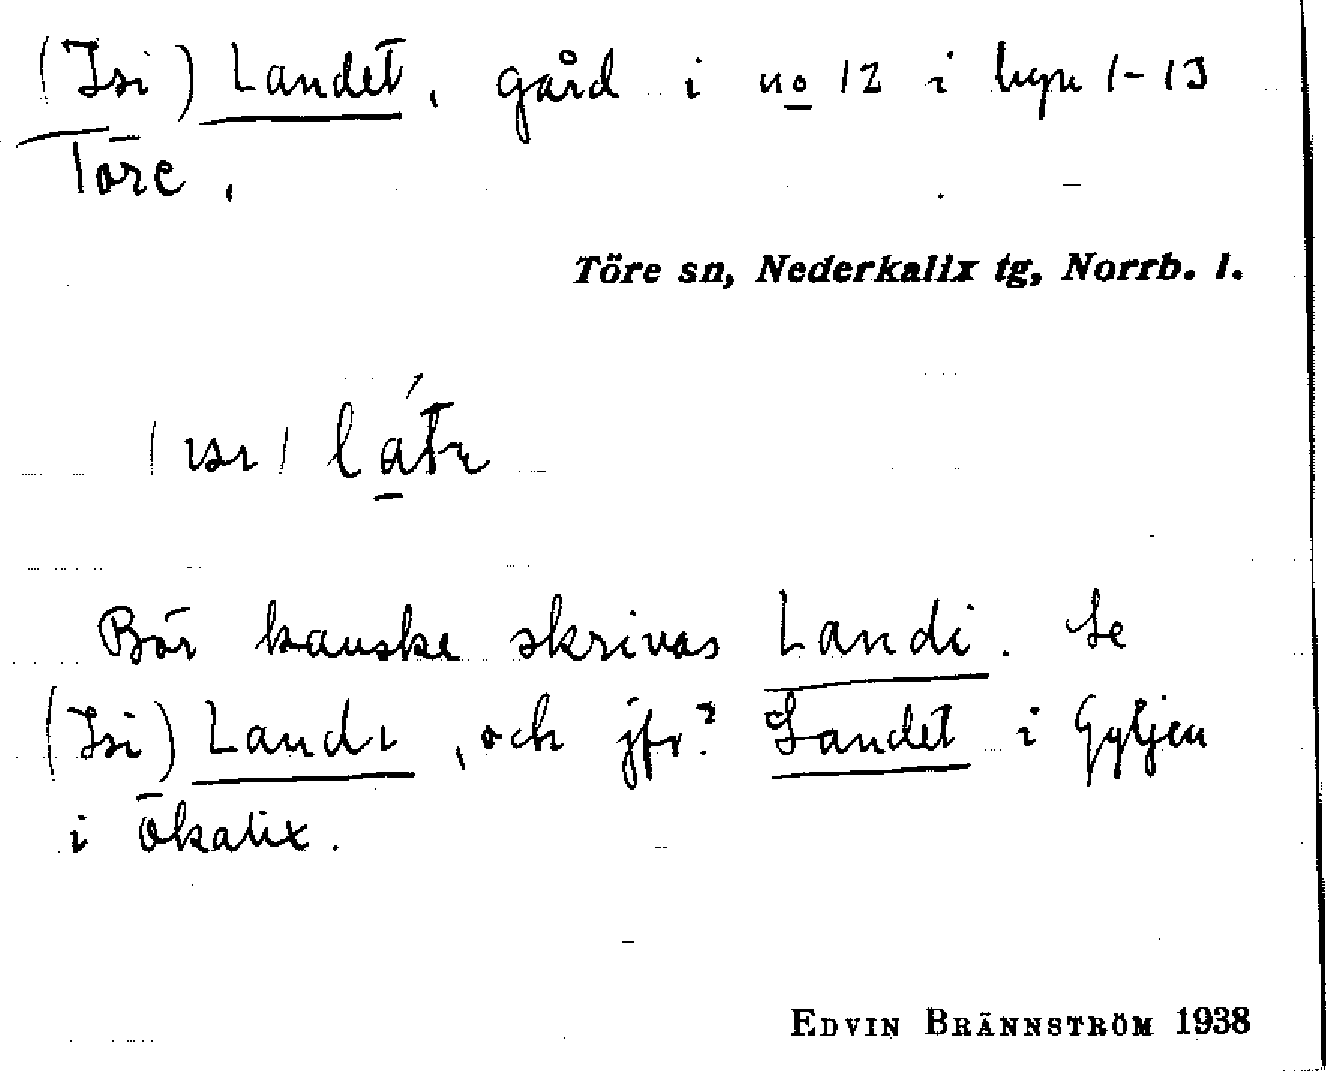 (Isi) Landet, gård i no 12 i byn 1-13
Töre.
Töre sn, Nederkalix tg, Norrb. l.
(ısı) látı
Bör kanske skrivas Landi. Se
(Isi) Landi, och jfr? Landet i Gyljen
i Ökalix.
EDVIN BRÄNNSTRÖM 1938